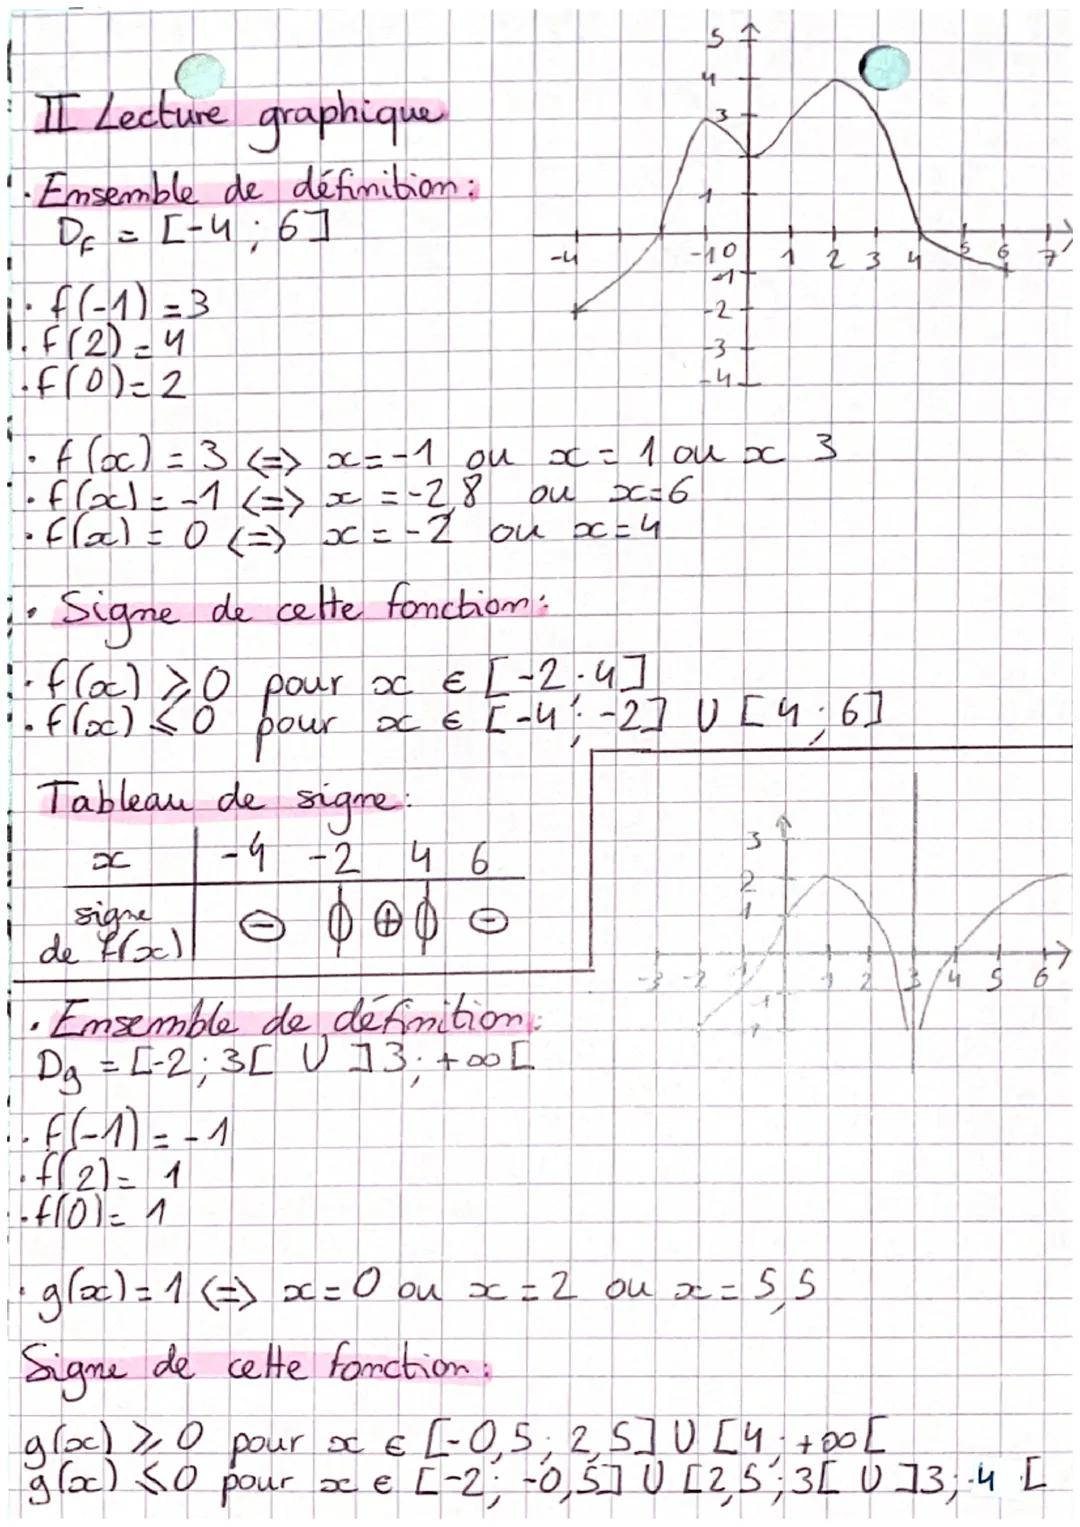 II Lecture graphique
· Ensemble de définition :
Df = [-4 ; 6]
5
4
3
1
-4 -1 0 1 2 3 4 5 6 7
-1
-2
-3
-4
· f(-1) = 3
· f(2) = 4
· f(0) = 2
· f(x) = 3 <=> x = -1 ou x = 1 ou x 3
· f(x) = -1 <=> x = -2,8 ou x = 6
· f(x) = 0 <=> x = -2 ou x = 4
· Signe de cette fonction :
· f(x) ⩾ 0 pour x ∈ [-2 ; 4]
· f(x) ⩽ 0 pour x ∈ [-4 ; -2] U [4 ; 6]
Tableau de signe :
x -4 -2 4 6
signe de f(x) - 0 + 0 -
3
2
1
-3 -2 -1 1 2 3 4 5 6
-1
· Ensemble de définition :
Dg = [-2 ; 3[ U ]3 ; +∞[
· f(-1) = -1
· f(2) = 1
· f(0) = 1
· g(x) = 1 <=> x = 0 ou x = 2 ou x = 5,5
Signe de cette fonction :
g(x) ⩾ 0 pour x ∈ [-0,5 ; 2,5] U [4 ; +∞[
g(x) ⩽ 0 pour x ∈ [-2 ; -0,5] U [2,5 ; 3[ U ]3 ; 4 [